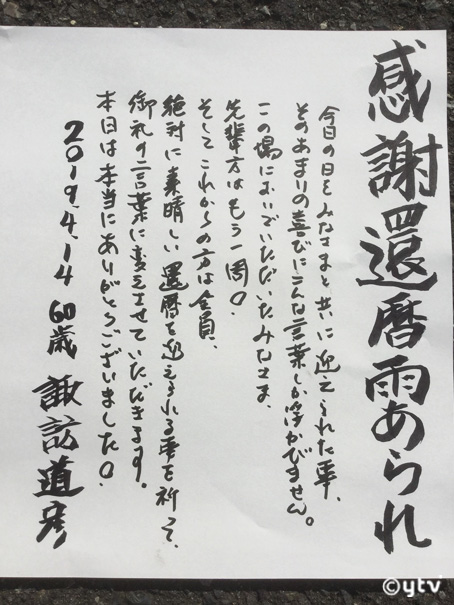 感謝還暦雨あられ
今日の日をみなさまと共に迎えられた事、
そのあまりの喜びにこんな言葉しか浮かびません。
この場においでいただいたみなさま、
先輩方はもう一周。
そしてこれからの方は全員、
絶対に素晴しい還暦を迎えられる事を祈って、
御礼の言葉に変えさせていただきます。
本日は本当にありがとうございました。
2019.4.14 60歳 諏訪道彦
©ytv